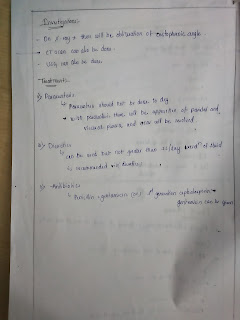 Investigations
- On X-ray → there will be obliteration of costophrenic angle
- CT scan can also be done.
- USG can also be done
Treatments
1) Paracentesis
↳ Paracentesis should not be done to dry
↳ with paracentesis there will be apposition of parietal and
visceral pleura and area will be sealed
2) Diuretics
↳ can be used but not greater than
↳ recommended
3) Antibiotics
↳ Penicillin + gentamicin (or) 1st generation cephalosporin +
gentamicin can be given